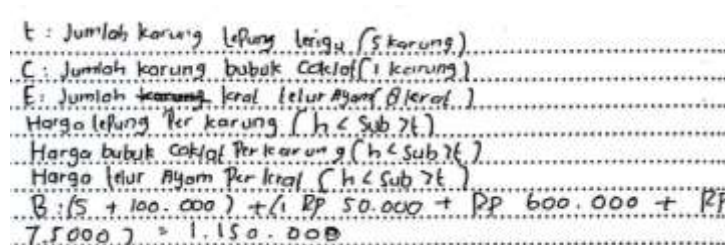 t : Jumlah karung tepung terigu (5 karung)
C : Jumlah karung bubuk Coklat (1 karung)
E : Jumlah karung krat telur Ayam (8 krat )
Harga tepung Per karung ( h < Sub > t )
Harga bubuk Coklat Per karung ( h < Sub > t )
Harga telur Ayam Per krat ( h < Sub > t )
B : (5 + 100.000 ) + (1 RP 50.000 + RP 600.000 + RP
7.5000 ) = 1.150.000